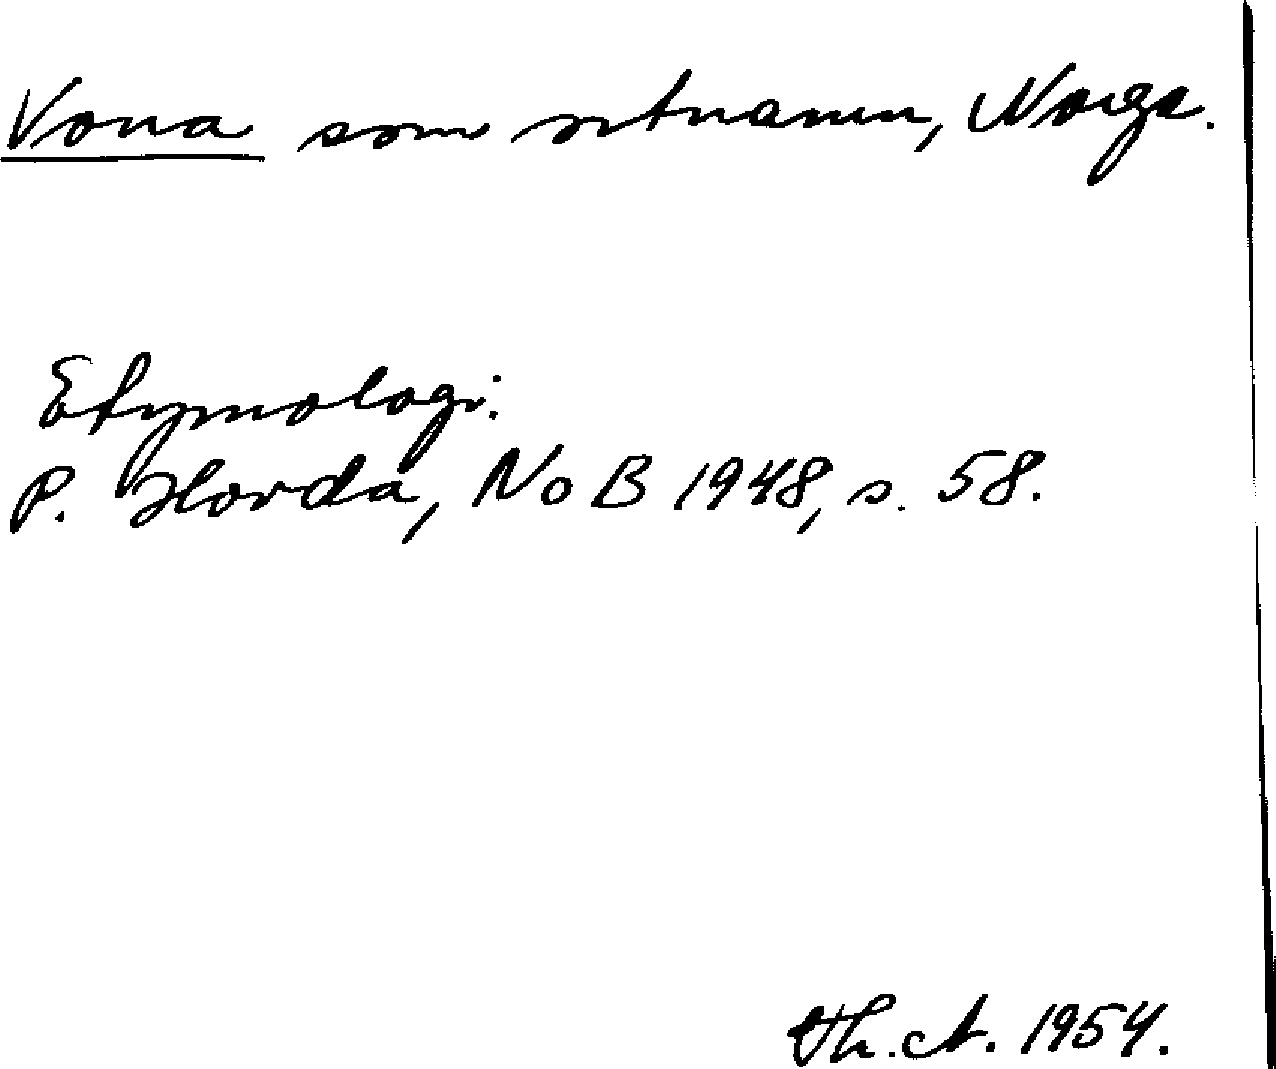 Vona som ortnamn, Norge.
Etymologi:
P. Hovda, NoB 1948, s. 58.
Th. A. 1954.